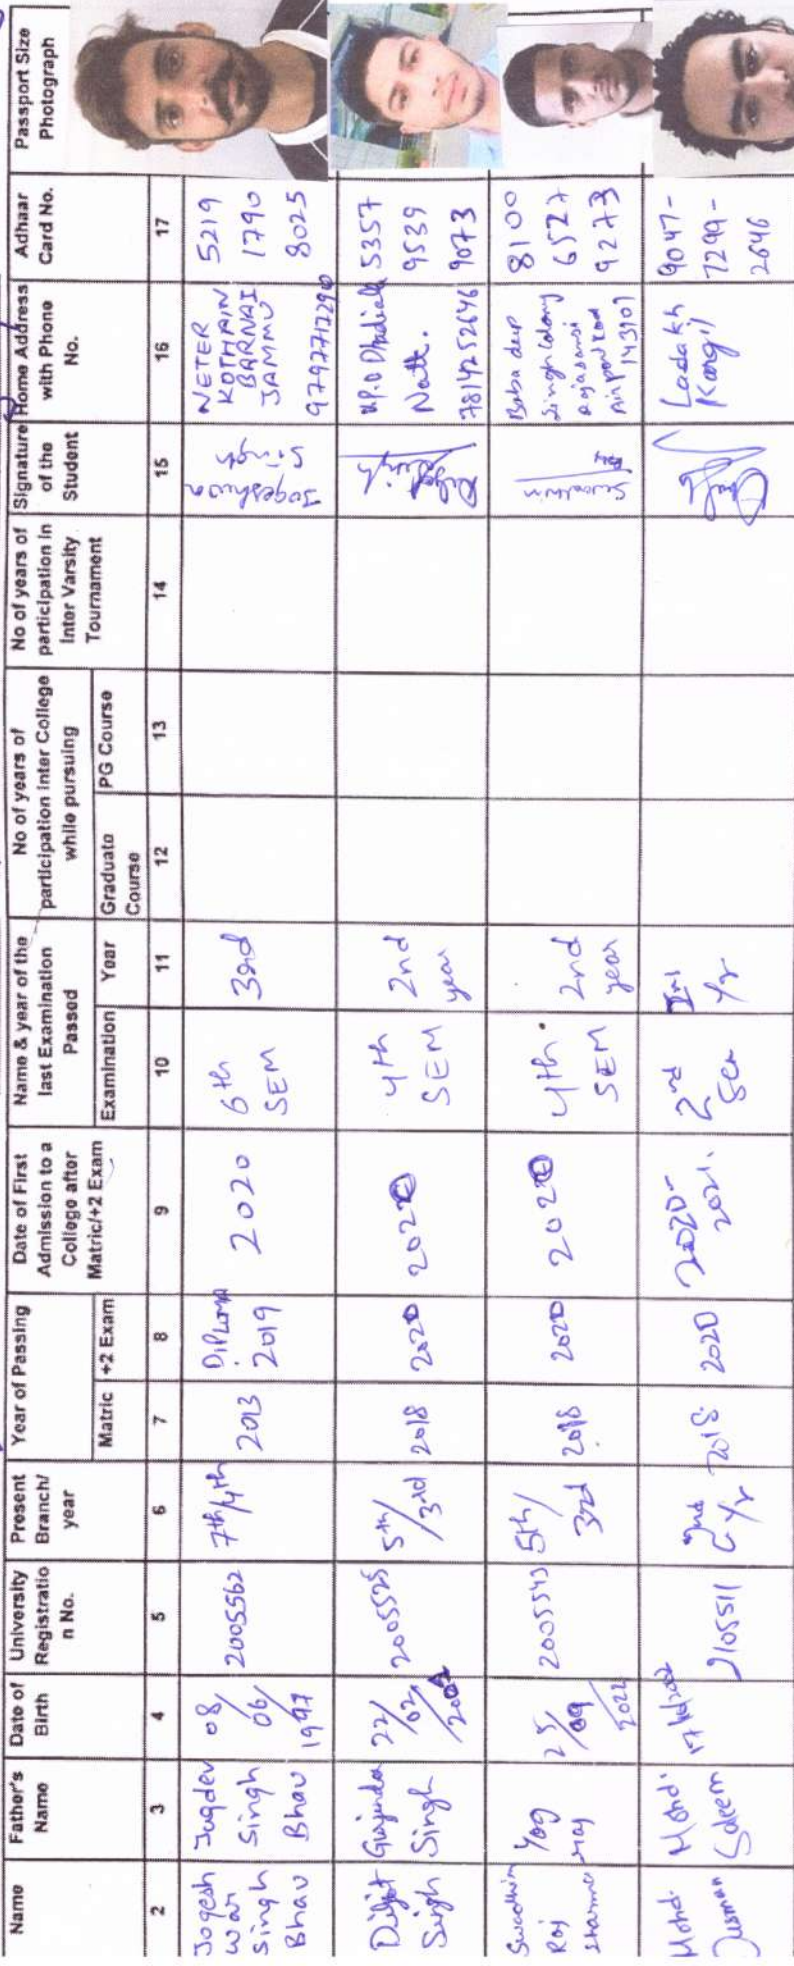 Name
Father's Name
Date of Birth
University Registratio n No.
Present Branch/ year
Year of Passing
Matric
+2 Exam
Date of First Admission to a College after Matric/+2 Exam
Name & year of the last Examination Passed
Examination
Year
No of years of participation Inter College while pursuing
Graduate Course
PG Course
No of years of participation in Inter Varsity Tournament
Signature of the Student
Home Address with Phone No.
Adhaar Card No.
Passport Size Photograph
2 3 4 5 6 7 8 9 10 11 12 13 14 15 16 17
Jogesh
war
Singh
Bhau
Jagdev
Singh
Bhau
08/
06/
1997
2005562
7th/4th
2013
Diploma
2019
2020
6th
SEM
3rd
Jogeshwar
Singh
NETER
KOTHAIN
BARNAI
JAMMU
9797712290
5219
1790
8025
Diljit
Singh
Singh
22/
02/
2002
2005525
5th/
3rd
2018
2020
2020
4th
SEM
2nd
year
V.P.O
Natt.
7814252646
5357
9539
9073
Raj
Sharma
Yog
Raj
25/
09
2005543
5th/
3rd
2018
2020
2020
4th
SEM
2nd
year
Baba deep
Singh Colony
rajasansi
Airport road
143101
8100
6527
9273
Mohd.
Mohd.
Saleem
2105511
2nd
Yr
2018
2020
2020-
2021.
2nd
Sem
Yr
Ladakh
Kargil
9047-
7299-
2646